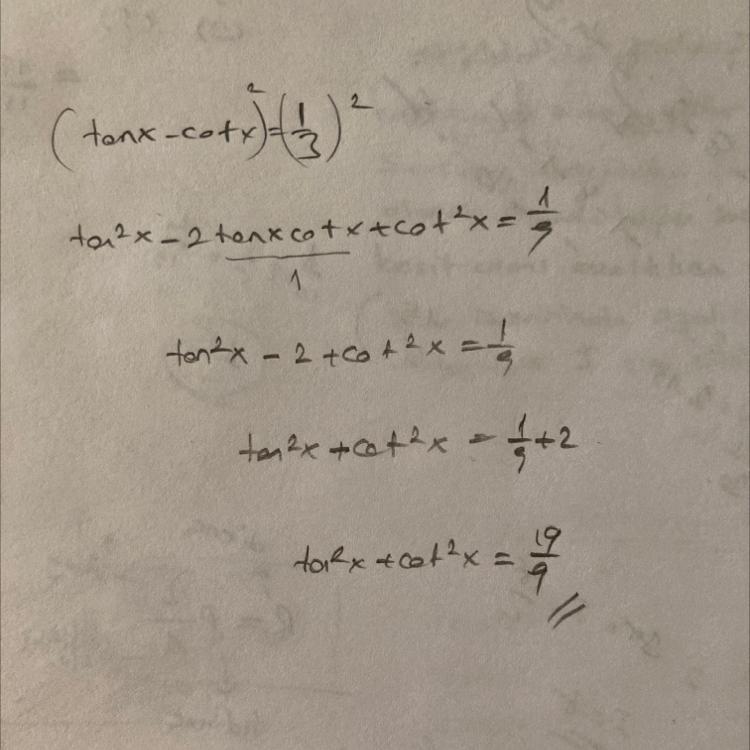 (tanx - cotx)² = (1/3)²
tan²x - 2 tanxcotx + cot²x = 1/9
1
tan²x - 2 + cot²x = 1/9
tan²x + cot²x = 1/9 + 2
tan²x + cot²x = 19/9